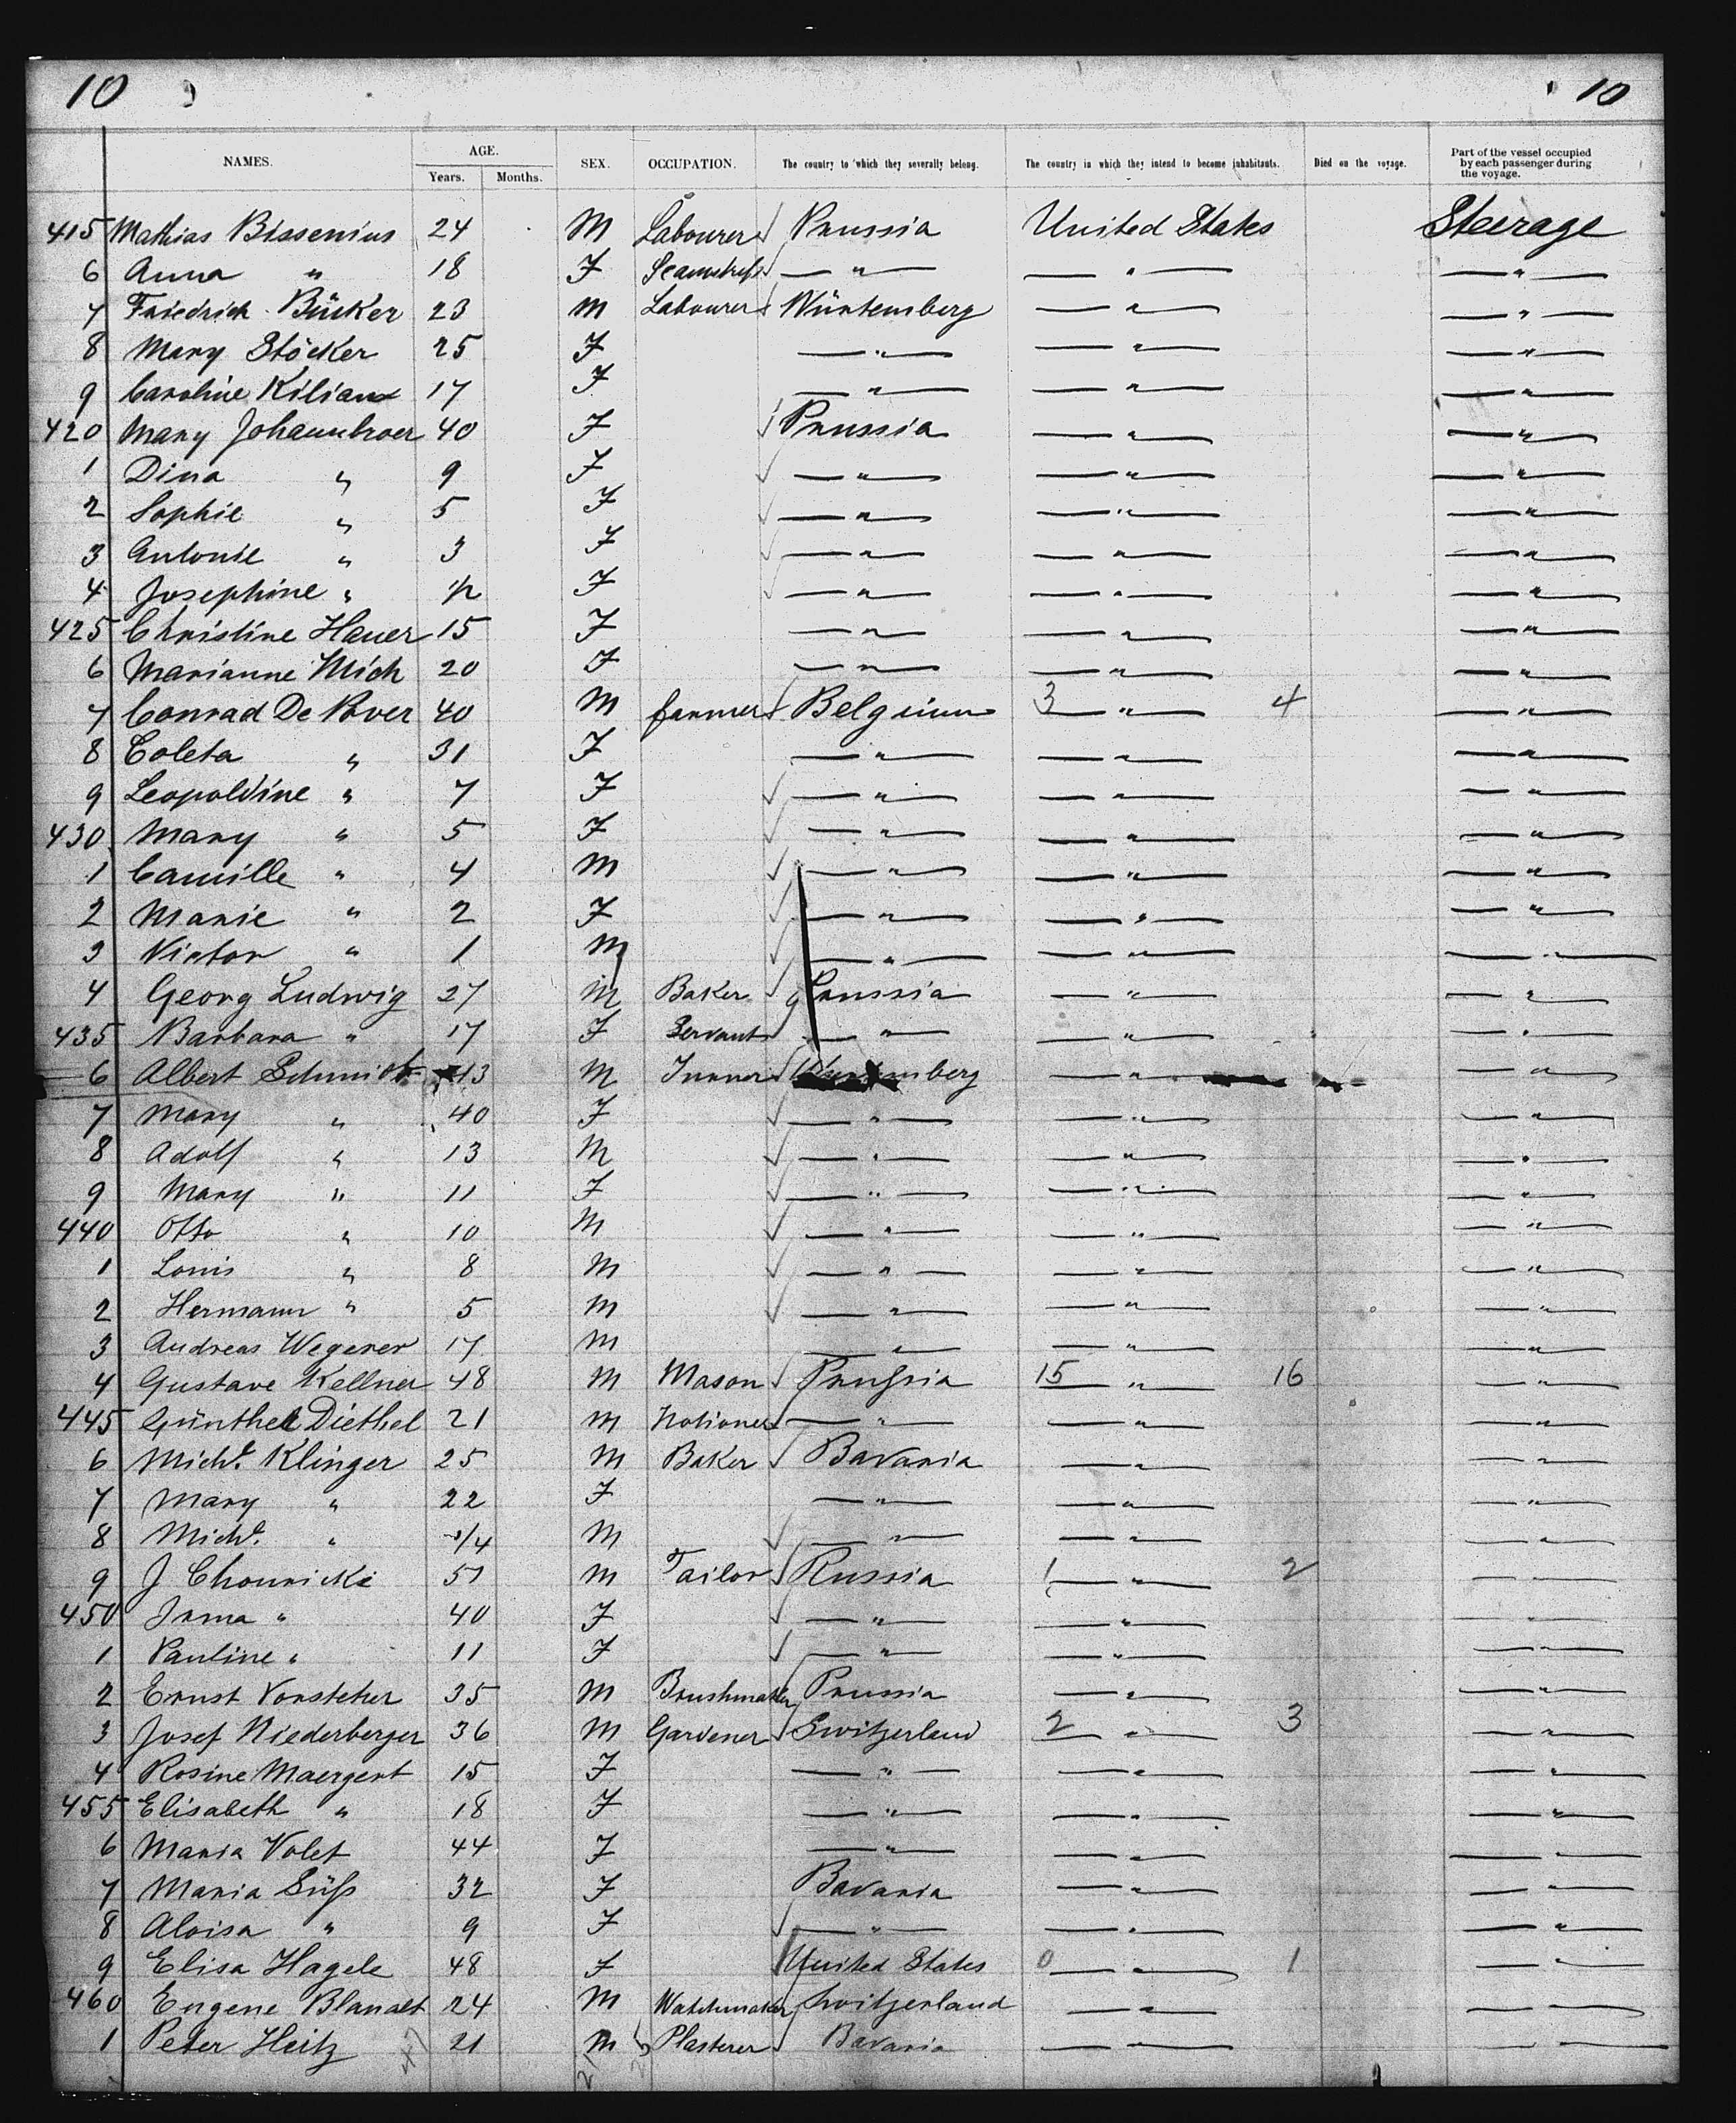 10 10
NAMES. AGE. SEX. OCCUPATION. The country to which they severally belong. The country in which they intend to become inhabitants. Died on the voyage. Part of the vessel occupied by each passenger during the voyage.
Years. Months.
415 Mathias Bissenius 24 M Labourer Prussia United States Steerage
6 Anna " 18 F Seamstress — " — — " — — " —
7 Friedrich Bücker 23 M Labourer Würtemberg — " — — " —
8 Mary Stöcker 25 F — " — — " — — " —
9 Caroline Kilian 17 F — " — — " — — " —
420 Mary 40 F Prussia — " — — " —
1 Dina " 9 F — " — — " — — " —
2 Sophie " 5 F — " — — " — — " —
3 Antonie " 3 F — " — — " — — " —
4 Josephine " 1/2 F — " — — " — — " —
425 Christine Hauer 15 F — " — — " — — " —
6 Marianne Mich 20 F — " — — " — — " —
7 Conrad De Pover 40 M farmer Belgium 3 — " — 4 — " —
8 Coleta " 31 F — " — — " — — " —
9 Leopoldine " 7 F — " — — " — — " —
430 Mary " 5 F — " — — " — — " —
1 Camille " 4 M — " — — " — — " —
2 Marie " 2 F — " — — " — — " —
3 Victor " 1 M — " — — " — — " —
4 Georg Ludwig 27 M Baker Prussia — " — — " —
435 Barbara " 17 F Servant — " — — " — — " —
6 Albert Schmidt 43 M Turner Würtemberg — " — — " —
7 Mary " 40 F — " — — " — — " —
8 Adolf " 13 M — " — — " — — " —
9 Mary " 11 F — " — — " — — " —
440 Otto " 10 M — " — — " — — " —
1 Louis " 8 M — " — — " — — " —
2 Hermann " 5 M — " — — " — — " —
3 Andreas Wegener 17 M — " — — " — — " —
4 Gustave Kellner 48 M Mason Prussia 15 — " — 16 — " —
445 Günther Diethel 21 M — " — — " — — " —
6 Michl. Klinger 25 M Baker Bavaria — " — — " —
7 Mary " 22 F — " — — " — — " —
8 Michl. " 3/4 M — " — — " — — " —
9 J 51 M Tailor Russia 1 — " — 2 — " —
450 " 40 F — " — — " — — " —
1 Pauline " 11 F — " — — " — — " —
2 Ernst Vorsteher 35 M Brushmaker Prussia — " — — " —
3 Josef Niederberger 36 M Gardener Switzerland 2 — " — 3 — " —
4 Rosine Maergert 15 F — " — — " — — " —
455 Elisabeth " 18 F — " — — " — — " —
6 Maria Volet 44 F — " — — " — — " —
7 Maria Süss 32 F Bavaria — " — — " —
8 Aloisa " 9 F — " — — " — — " —
9 Elisa Hagele 48 F United States 0 — " — 1 — " —
460 Eugene 24 M Watchmaker Switzerland — " — — " —
1 Peter Heitz 21 M Plasterer Bavaria — " — — " —